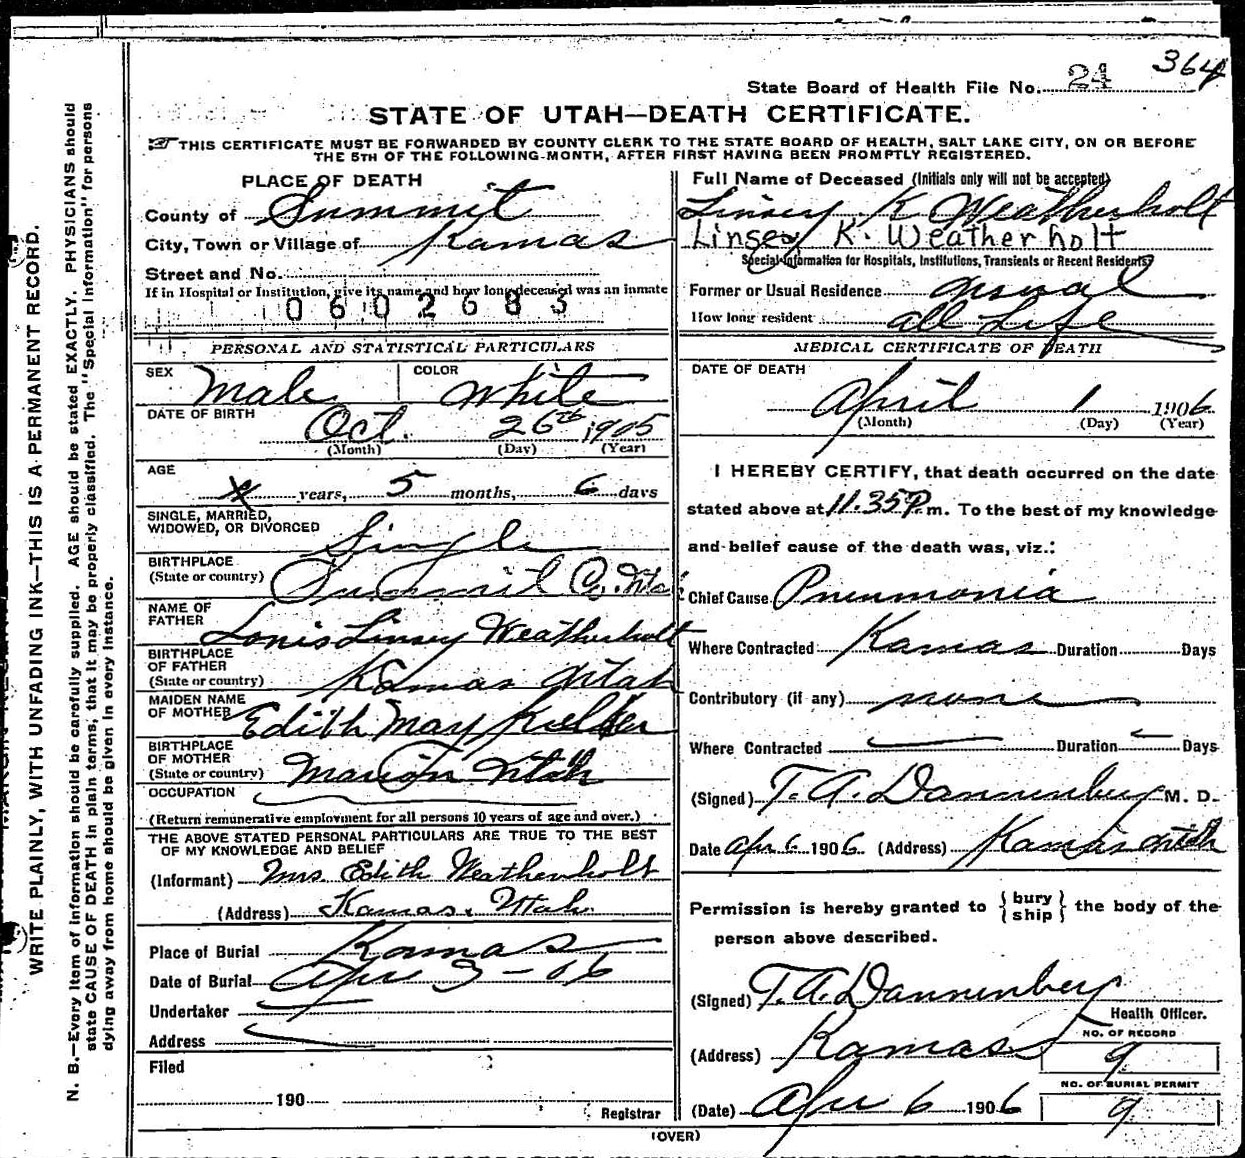 364
State Board of Health File No. 24
STATE OF UTAH—DEATH CERTIFICATE.
THIS CERTIFICATE MUST BE FORWARDED BY COUNTY CLERK TO THE STATE BOARD OF HEALTH, SALT LAKE CITY, ON OR BEFORE
THE 5TH OF THE FOLLOWING MONTH, AFTER FIRST HAVING BEEN PROMPTLY REGISTERED.
PLACE OF DEATH
County of Summit
City, Town or Village of Kamas
Street and No.
If in Hospital or Institution, give its name and how long deceased was an inmate
0602683
PERSONAL AND STATISTICAL PARTICULARS
SEX Male COLOR White
DATE OF BIRTH
Oct. 26th 1905
(Month) (Day) (Year)
AGE
years, 5 months, 6 days
SINGLE, MARRIED,
WIDOWED, OR DIVORCED Single
BIRTHPLACE
(State or country) Summit Co. Utah
NAME OF
FATHER Louis Linsey Weatherholt
BIRTHPLACE
OF FATHER
(State or country) Kamas Utah
MAIDEN NAME
OF MOTHER Edith May
BIRTHPLACE
OF MOTHER
(State or country) Marion Utah
OCCUPATION
(Return remunerative employment for all persons 10 years of age and over.)
THE ABOVE STATED PERSONAL PARTICULARS ARE TRUE TO THE BEST
OF MY KNOWLEDGE AND BELIEF
(Informant) Mrs Edith Weatherholt
(Address) Kamas, Utah.
Place of Burial Kamas
Date of Burial Apr 3-06
Undertaker
Address
Filed
190
Registrar
Full Name of Deceased (Initials only will not be accepted)
Linsey K Weatherholt
Linsey K. Weatherholt
Special Information for Hospitals, Institutions, Transients or Recent Residents?
Former or Usual Residence usual
How long resident all Life
MEDICAL CERTIFICATE OF DEATH
DATE OF DEATH
April 1 1906
(Month) (Day) (Year)
I HEREBY CERTIFY, that death occurred on the date
stated above at 11.35 P. m. To the best of my knowledge
and belief cause of the death was, viz.:
Chief Cause Pneumonia
Where Contracted Kamas Duration Days
Contributory (if any) none
Where Contracted Duration Days
(Signed) T. A. Dannenberg M. D.
Date Apr 6 1906 (Address) Kamas Utah
Permission is hereby granted to { bury
ship } the body of the
person above described.
(Signed) T. A. Dannenberg
Health Officer.
(Address) Kamas
NO. OF RECORD
9
NO. OF BURIAL PERMIT
9
(Date) Apr 6 1906
(OVER)
WRITE PLAINLY, WITH UNFADING INK—THIS IS A PERMANENT RECORD.
N. B.—Every item of information should be carefully supplied. AGE should be stated EXACTLY. PHYSICIANS should
state CAUSE OF DEATH in plain terms, that it may be properly classified. The "Special Information" for persons
dying away from home should be given in every instance.